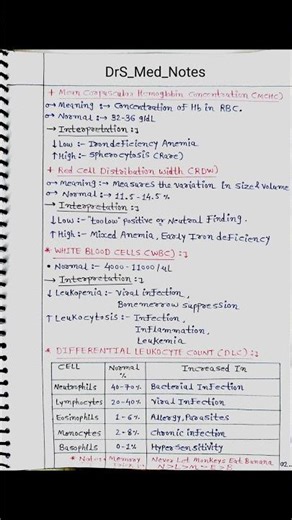 DrS_Med_Notes
+ Mean Corpuscular Hemoglobin Concentration (MCHC)
→ Meaning :→ Concentration of Hb in RBC.
→ Normal :→ 32-36 g/dL
→ Interpretation :↴
↓ Low :- Iron deficiency Anemia
↑ High :- Spherocytosis (Rare)
+ Red Cell Distribution Width (RDW)
→ Meaning :→ Measures the variation in Size & Volume
→ Normal :→ 11.5-14.5 %
→ Interpretation :↴
↓ Low :- "too low" positive or Neutral Finding.
↑ High :- Mixed Anemia, Early Iron deficiency
* WHITE BLOOD CELLS (WBC) :↴
• Normal :- 4000-11000 /uL
→ Interpretation :↴
↓ Leukopenia :- Viral infection,
Bonemerrow suppression
↑ Leukocytosis :- Infection,
Inflammation,
Leukemia
* DIFFERENTIAL LEUKOCYTE COUNT (DLC) :↴
CELL Normal % Increased In
Neutrophils 40-70% Bacterial Infection
Lymphocytes 20-40% Viral Infection
Eosinophils 1-6% Allergy, Parasites
Monocytes 2-8% Chronic infection
Basophils 0-1% Hypersensitivity
* Note: Memory Never Let Monkeys Eat Banana
N > L > M > E > B
02